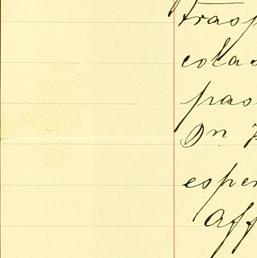 trasp
colas
pas
On
esper
Aff